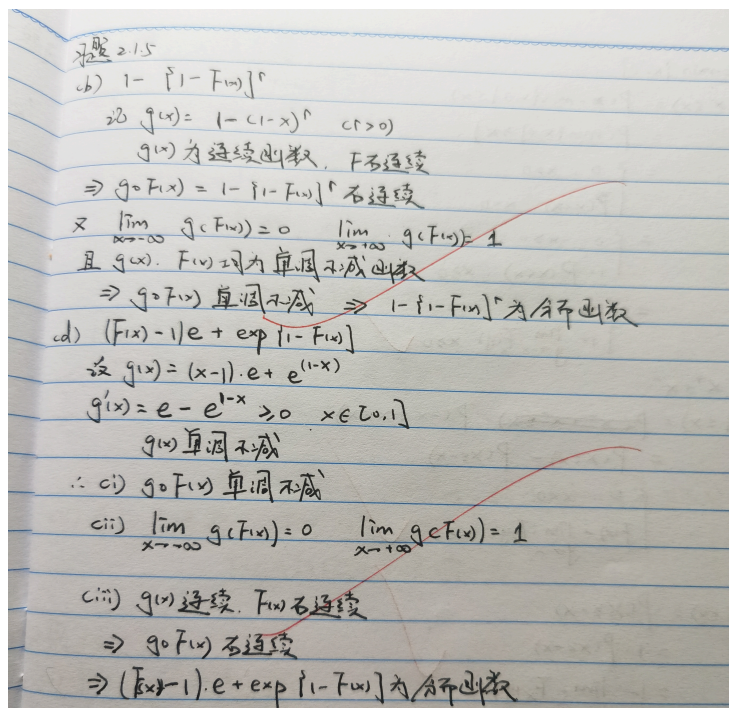 习题 2.1.5
(b) 1 - {1 - F(x)}^r
记 g(x) = 1 - (1-x)^r (r>0)
g(x) 为连续函数, F右连续
⇒ g∘F(x) = 1 - {1 - F(x)}^r 右连续
又 lim_{x→-∞} g(F(x)) = 0 lim_{x→+∞} g(F(x)) = 1
且 g(x). F(x) 均为单调不减函数
⇒ g∘F(x) 单调不减 ⇒ 1 - {1 - F(x)}^r 为分布函数
(d) (F(x) - 1)e + exp{1 - F(x)}
设 g(x) = (x-1)·e + e^{(1-x)}
g'(x) = e - e^{1-x} ≥ 0 x∈[0,1]
g(x) 单调不减
∴ (i) g∘F(x) 单调不减
(ii) lim_{x→-∞} g(F(x)) = 0 lim_{x→+∞} g(F(x)) = 1
(iii) g(x) 连续. F(x) 右连续
⇒ g∘F(x) 右连续
⇒ (F(x) - 1)·e + exp{1 - F(x)} 为分布函数